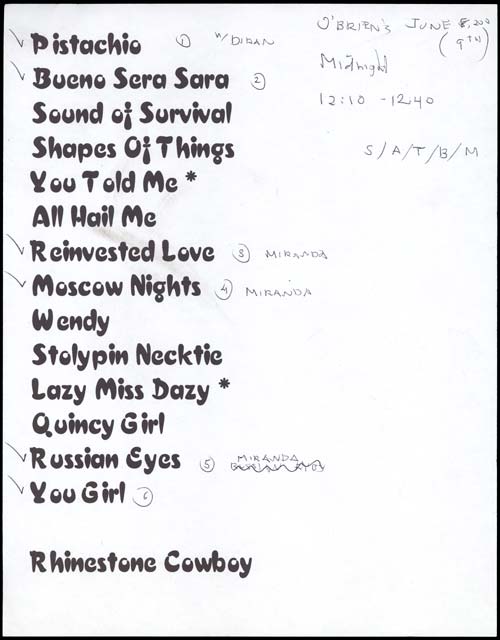 O'BRIEN'S JUNE 8, 200
(9TH)
Midnight
12:10 - 12:40
S/A/T/B/M
Pistachio ① w/ DIRAN
Bueno Sera Sara ②
Sound of Survival
Shapes Of Things
You Told Me *
All Hail Me
Reinvested Love ③ MIRANDA
Moscow Nights ④ MIRANDA
Wendy
Stolypin Necktie
Lazy Miss Dazy *
Quincy Girl
Russian Eyes ⑤ MIRANDA
You Girl ⑥
Rhinestone Cowboy